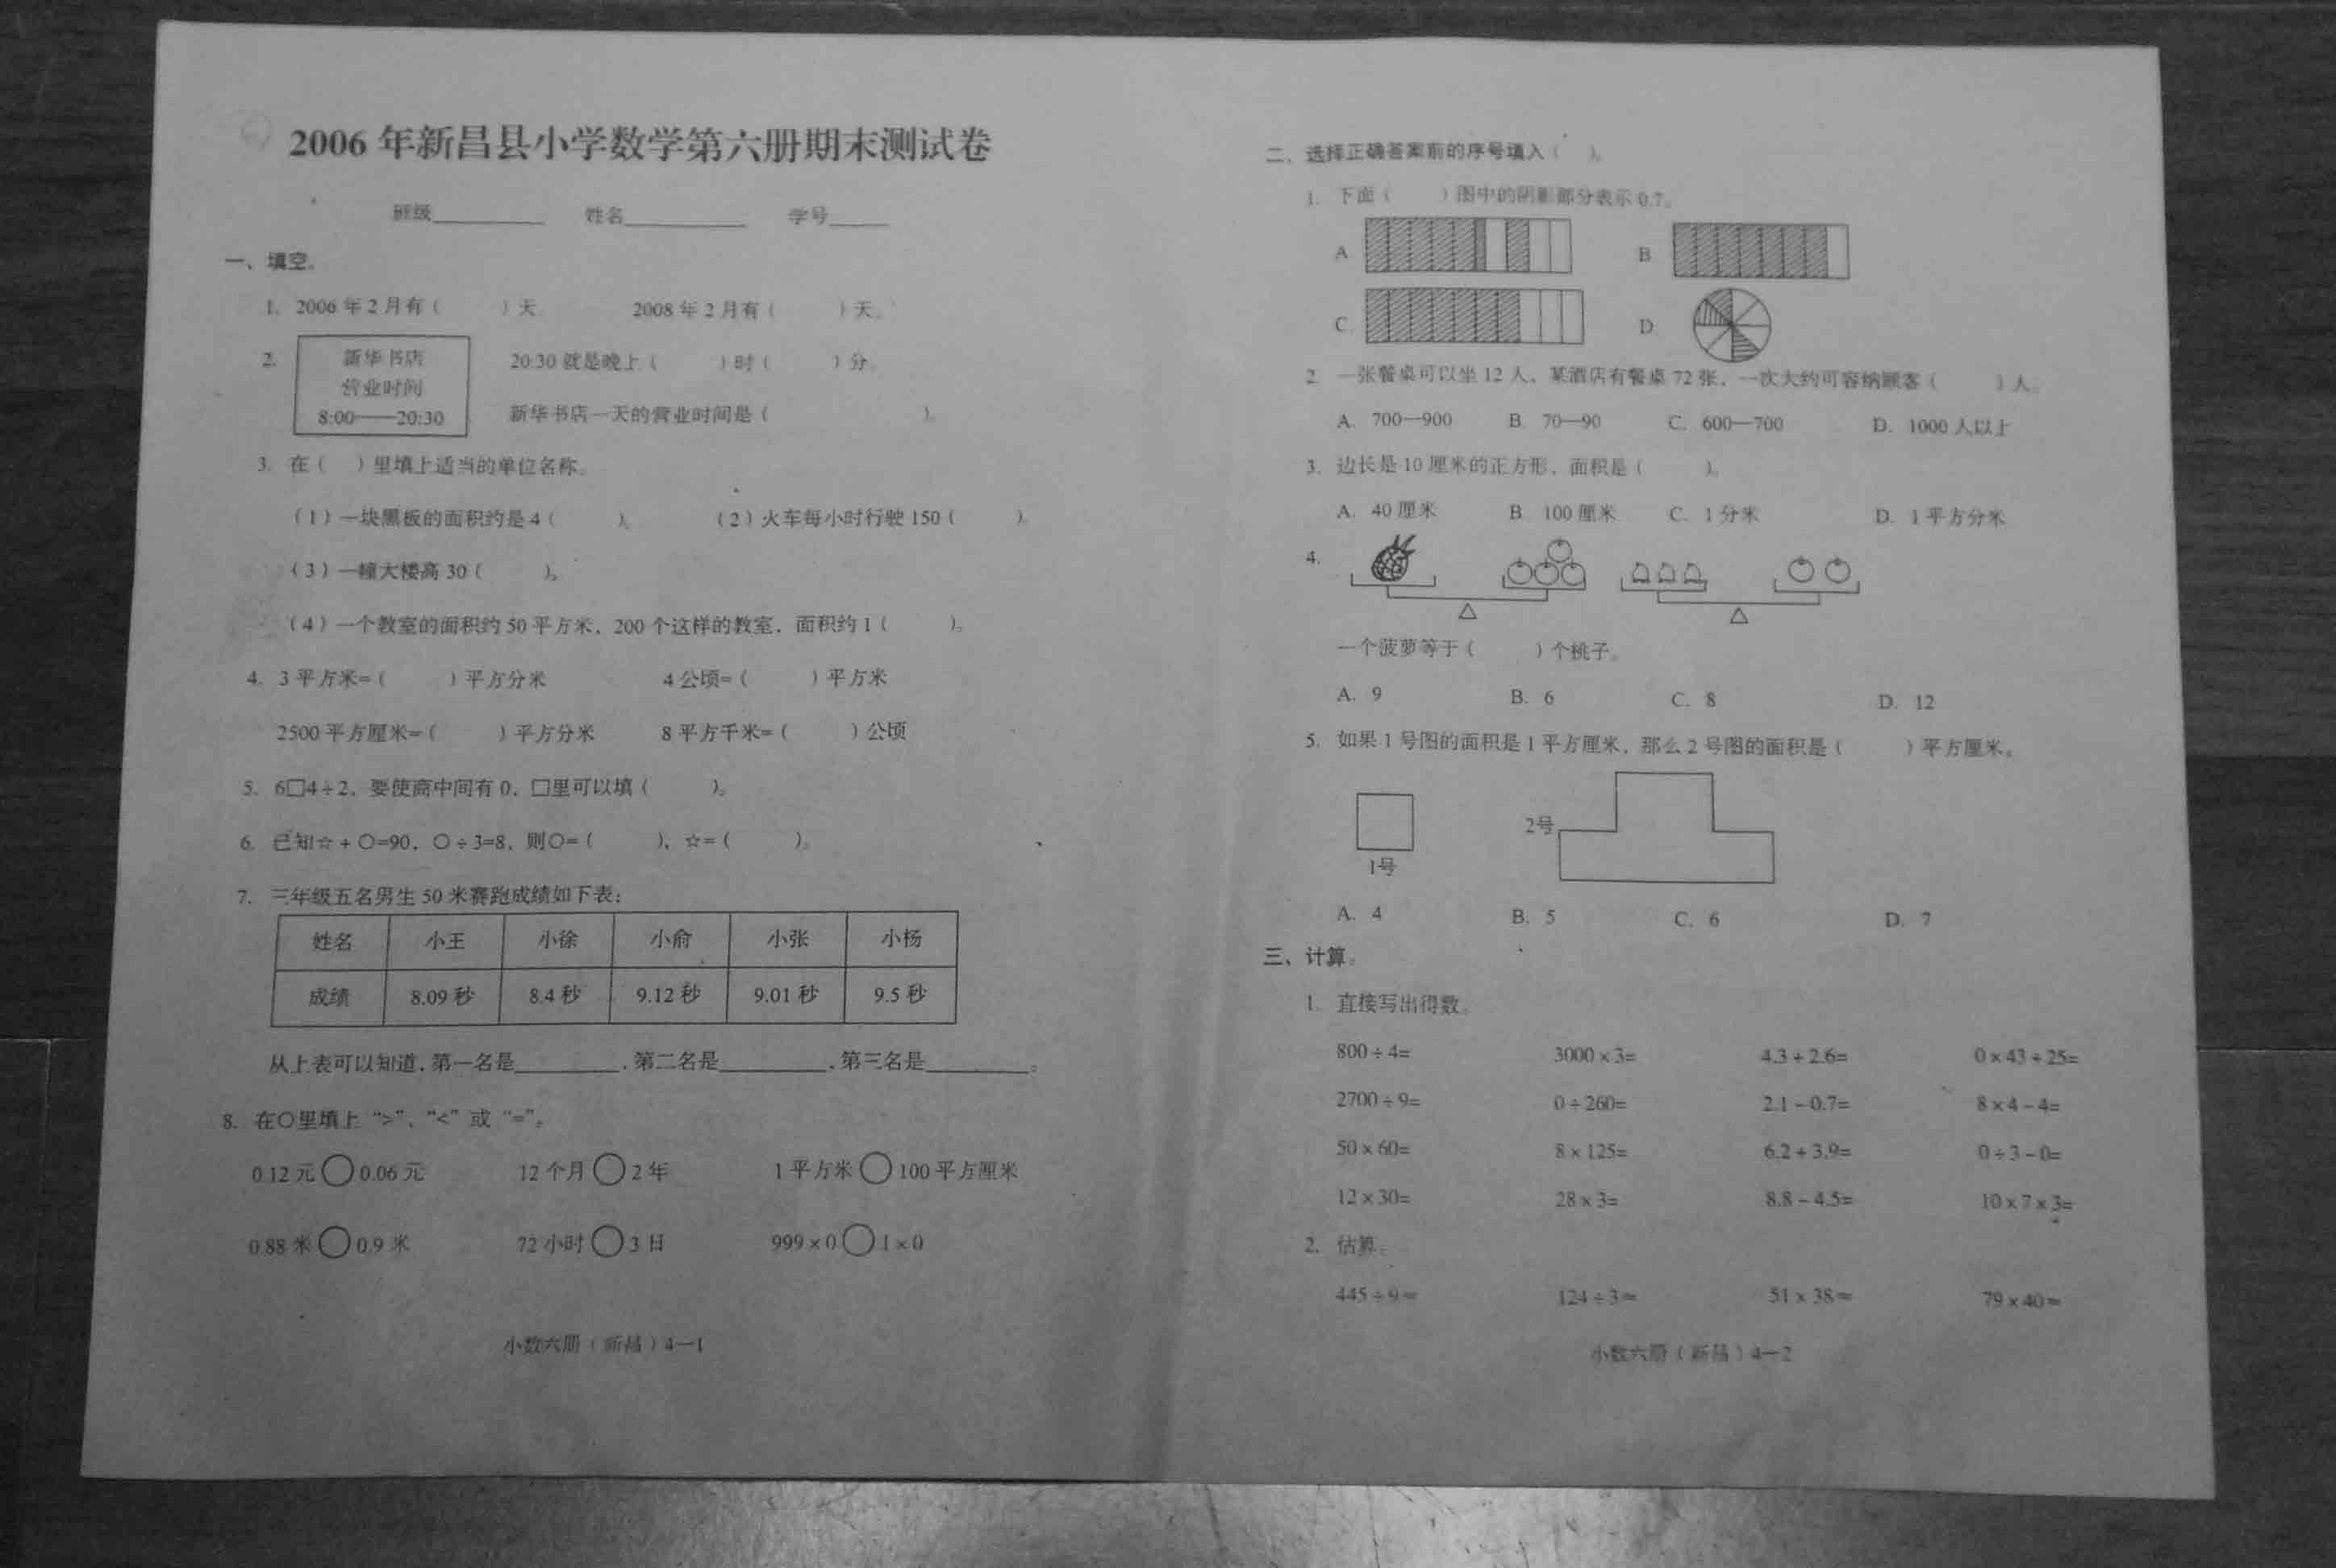 2006 年新昌县小学数学第六册期末测试卷
班级________ 姓名________ 学号____
一、填空。
1. 2006 年 2 月有（ ）天。 2008 年 2 月有（ ）天。
2. 新华书店
营业时间
8:00——20:30
20:30 就是晚上（ ）时（ ）分。
新华书店一天的营业时间是（ ）。
3. 在（ ）里填上适当的单位名称。
（1）一块黑板的面积约是 4（ ）。 （2）火车每小时行驶 150（ ）。
（3）一幢大楼高 30（ ）。
（4）一个教室的面积约 50 平方米，200 个这样的教室，面积约 1（ ）。
4. 3 平方米=（ ）平方分米 4 公顷=（ ）平方米
2500 平方厘米=（ ）平方分米 8 平方千米=（ ）公顷
5. 6□4÷2，要使商中间有 0，□里可以填（ ）。
6. 已知☆+○=90，○÷3=8，则○=（ ），☆=（ ）。
7. 三年级五名男生 50 米赛跑成绩如下表：
姓名 小王 小徐 小俞 小张 小杨
成绩 8.09 秒 8.4 秒 9.12 秒 9.01 秒 9.5 秒
从上表可以知道，第一名是________，第二名是________，第三名是________。
8. 在○里填上“>”、“<”或“=”。
0.12 元○0.06 元 12 个月○2 年 1 平方米○100 平方厘米
0.88 米○0.9 米 72 小时○3 日 999×0○1×0
小数六册（新昌）4—1
二、选择正确答案前的序号填入（ ）。
1. 下面（ ）图中的阴影部分表示 0.7。
A B
C. D
2. 一张餐桌可以坐 12 人，某酒店有餐桌 72 张，一次大约可容纳顾客（ ）人。
A. 700—900 B. 70—90 C. 600—700 D. 1000 人以上
3. 边长是 10 厘米的正方形，面积是（ ）。
A. 40 厘米 B. 100 厘米 C. 1 分米 D. 1 平方分米
4.
一个菠萝等于（ ）个桃子。
A. 9 B. 6 C. 8 D. 12
5. 如果 1 号图的面积是 1 平方厘米，那么 2 号图的面积是（ ）平方厘米。
2号
1号
A. 4 B. 5 C. 6 D. 7
三、计算。
1. 直接写出得数。
800÷4= 3000×3= 4.3+2.6= 0×43+25=
2700÷9= 0÷260= 2.1-0.7= 8×4-4=
50×60= 8×125= 6.2+3.9= 0÷3-0=
12×30= 28×3= 8.8-4.5= 10×7×3=
2. 估算。
445÷9≈ 124÷3≈ 51×38≈ 79×40≈
小数六册（新昌）4—2